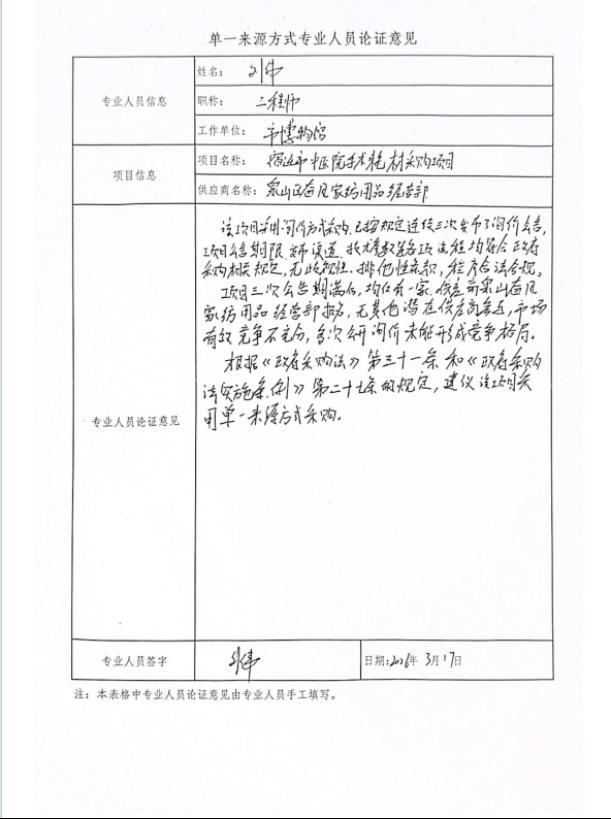 单一来源方式专业人员论证意见
专业人员信息
姓名：刘伟
职称：工程师
工作单位：市博物馆
项目信息
项目名称：宿迁市中医院手术耗材采购项目
供应商名称：泉山区春风家纺用品经营部
专业人员论证意见
该项目采用询价方式采购，已按规定连续三次发布了询价公告，
项目公告期限、发布渠道、技术参数等各项流程均符合政府
采购相关规定，无歧视性、排他性条款，程序合法合规。
项目三次公告期满后，均仅有一家供应商泉山区春风
家纺用品经营部报名，无其他潜在供应商参与，市场
有效竞争不充分，多次公开询价未能形成竞争格局。
根据《政府采购法》第三十一条和《政府采购
法实施条例》第二十七条的规定，建议该项目采
用单一来源方式采购。
专业人员签字
刘伟
日期：2026年3月17日
注：本表格中专业人员论证意见由专业人员手工填写。